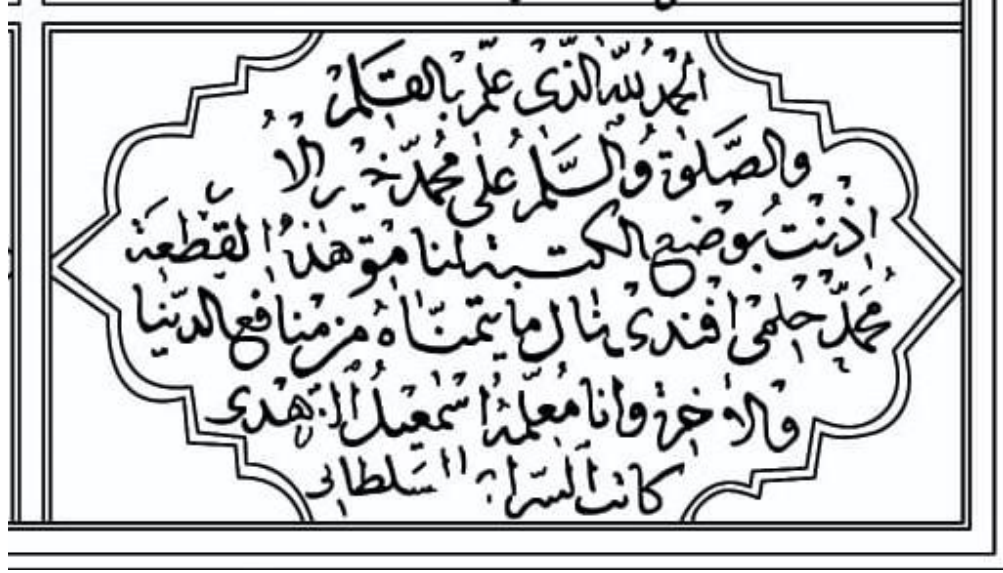 الحمد لله الذى علم بالقلم
والصلوة والسلم على محمد خير الا
اذنت بوضع الكتبة لنا مقو هذا القطعة
محمد حلمى افندى نال ما يتمناه من منافع الدنيا
والاخرة وانا معلمه اسمعيل الزهدى
كاتب السراى السلطانى